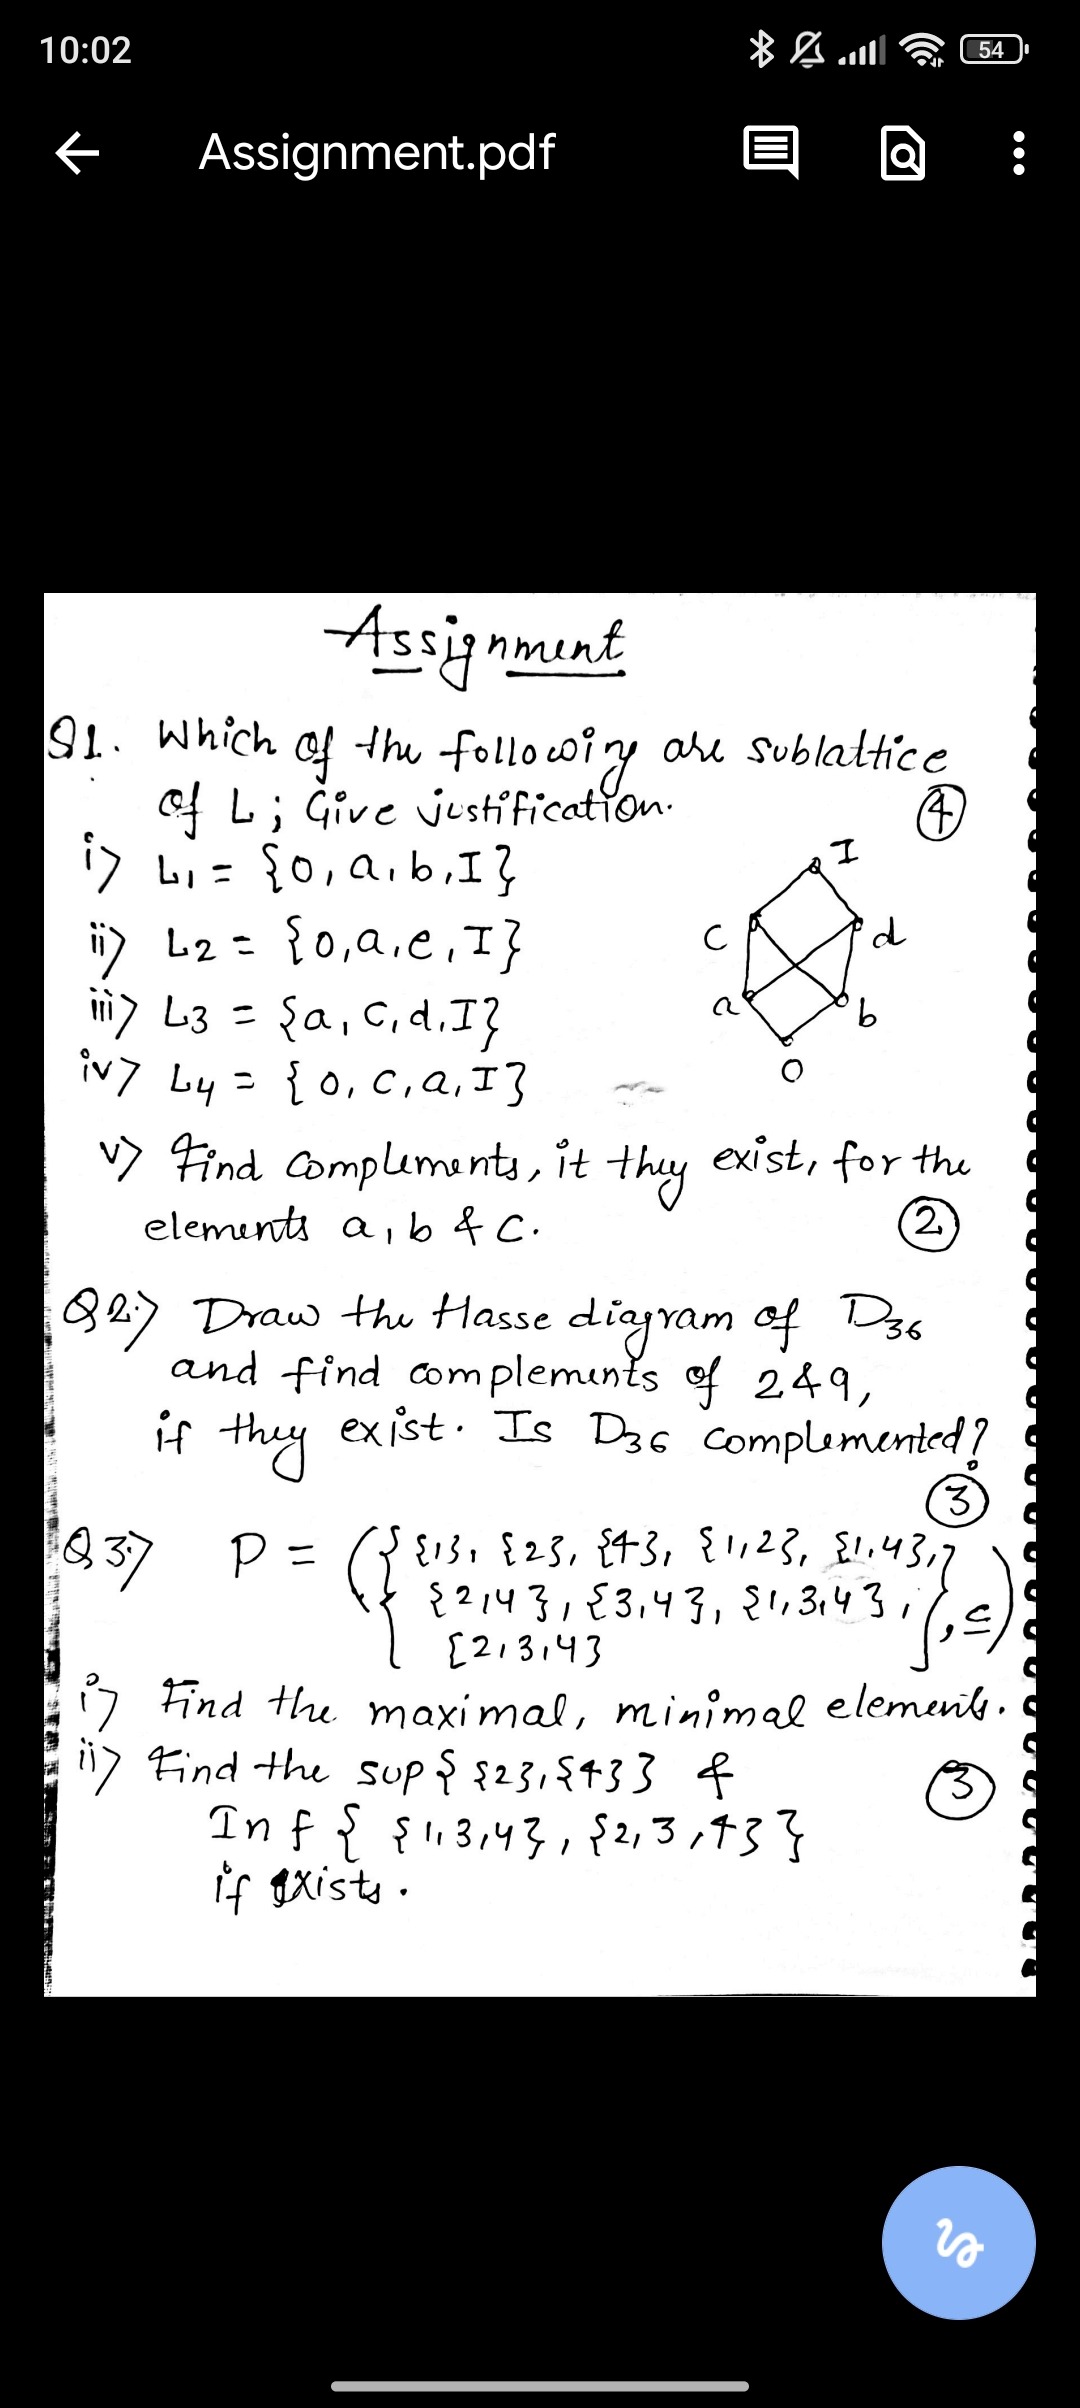 10:02
54
Assignment.pdf
Assignment
Q1. Which of the following are sublattice
of L; Give justification.
4
i) L1 = {0, a, b, I}
ii) L2 = {0, a, e, I}
iii) L3 = {a, c, d, I}
iv) L4 = {0, c, a, I}
I
c
d
a
b
0
v) Find complements, it they exist, for the
elements a, b & c.
2
Q2:) Draw the Hasse diagram of D36
and find complements of 2&9,
if they exist. Is D36 complemented?
3
Q3:) P = ({ {1}, {2}, {4}, {1,2}, {1,4},
{2,4}, {3,4}, {1,3,4},
{2,3,4} }, ⊆)
i) Find the maximal, minimal elements.
ii) Find the sup{ {2}, {4} } &
3
Inf { {1,3,4}, {2,3,4} }
if exists.